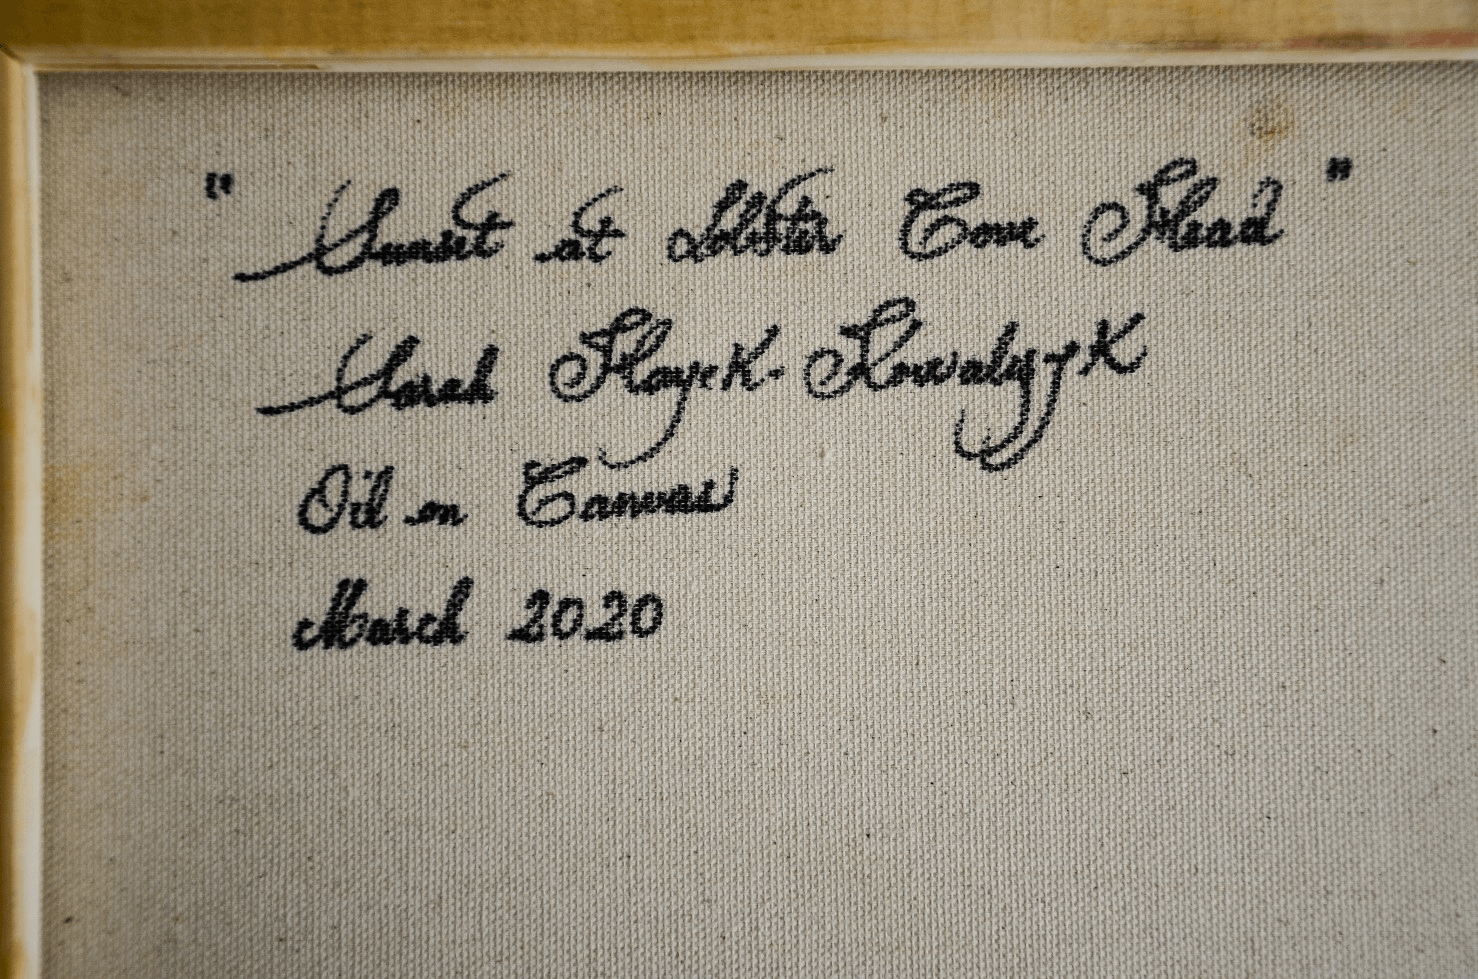 " Sunset at Lobster Cove Head "
Sarah Hayek-Kowalyyk
Oil on Canvas
March 2020